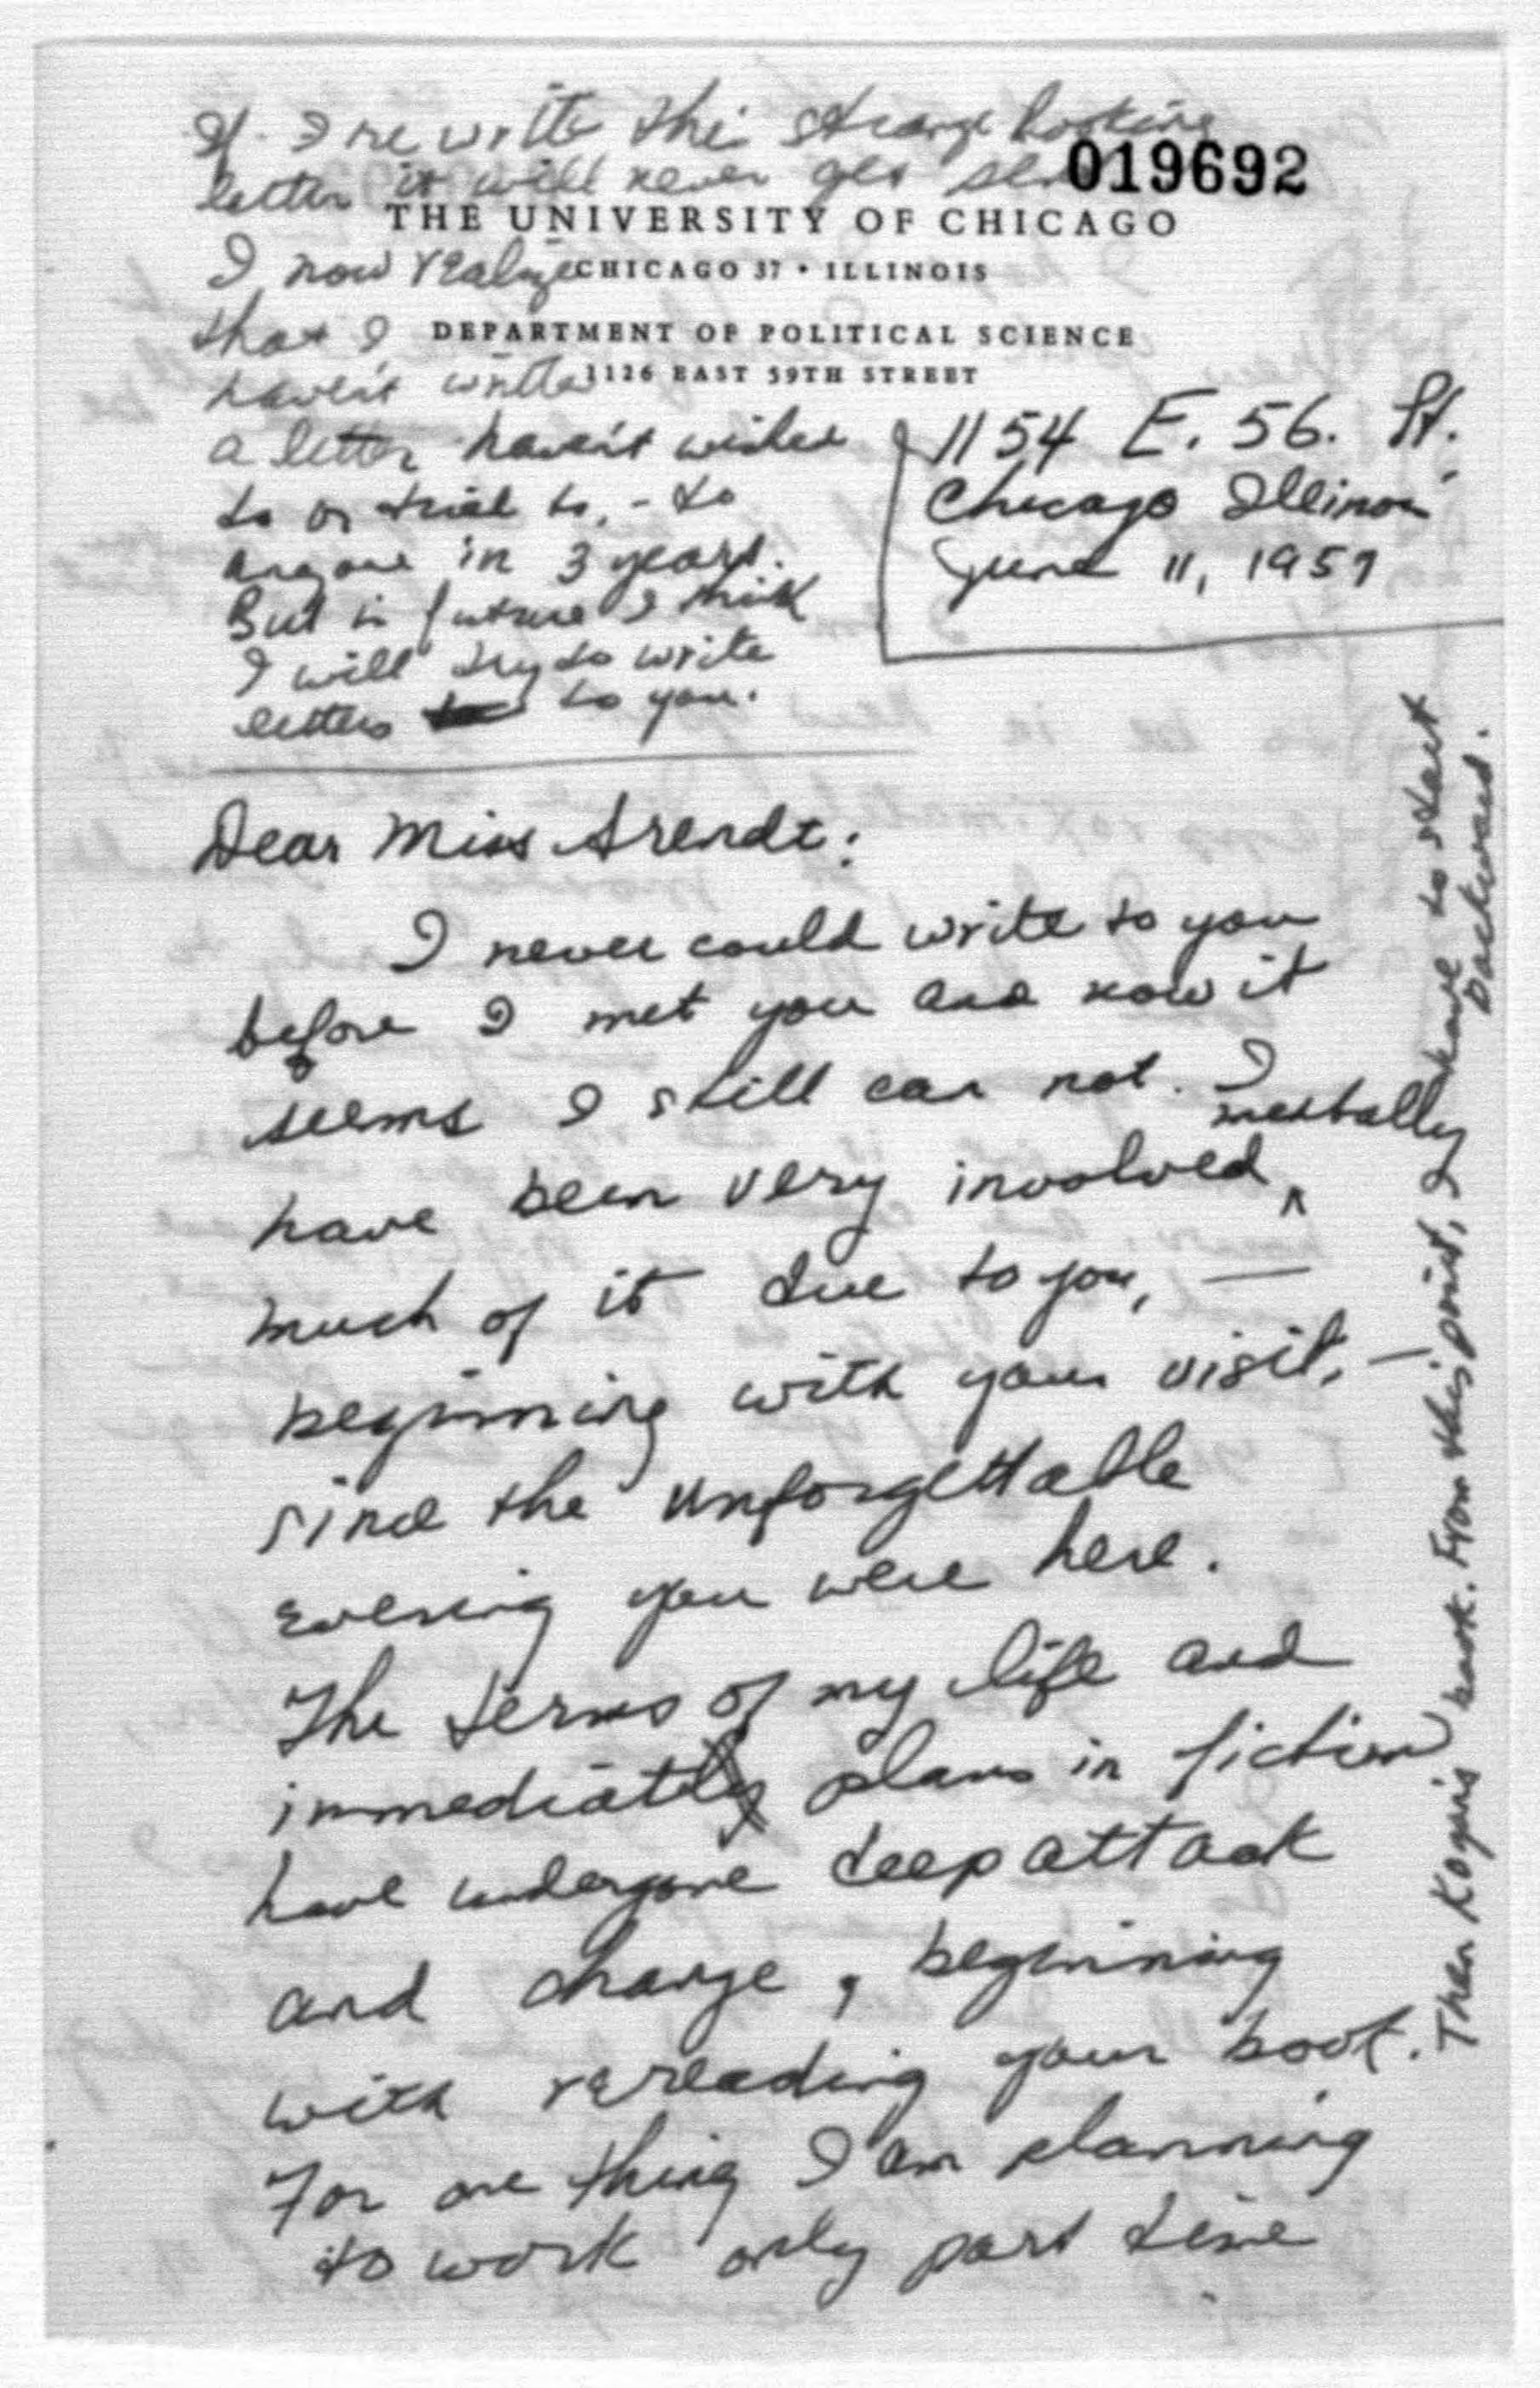 If I rewrite this strange looking
letter it will never get
019692
THE UNIVERSITY OF CHICAGO
CHICAGO 37 • ILLINOIS
DEPARTMENT OF POLITICAL SCIENCE
1126 EAST 59TH STREET
I now realize
that I
haven't written
a letter haven't wished
to or tried to, - to
anyone in 3 years.
But in future I think
I will try to write
letters to you.
1154 E. 56. St.
Chicago Illinois
June 11, 1957
Dear Miss Arendt:
I never could write to you
before I met you and now it
seems I still can not. I
have been very involved mentally
much of it due to you, —
beginning with your visit, —
since the unforgettable
evening you were here.
The terms of my life and
immediate plans in fiction
have undergone deep attack
and change, beginning
with rereading your book.
For one thing I am planning
to work only part time
Then Kogin's book. From this point, I have to start
backward.